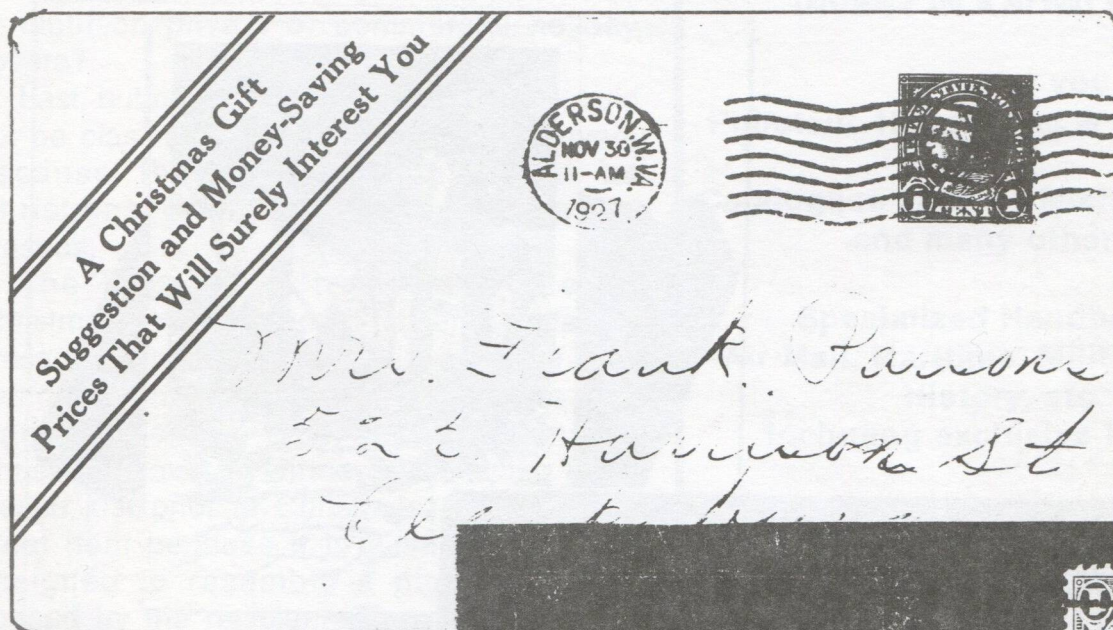 A Christmas Gift
Suggestion and Money-Saving
Prices That Will Surely Interest You
ALDERSON, W.VA.
NOV 30
11-AM
1927
STATES OF
1 CENT 1
Mr. Frank Parsons
Harrison St
1